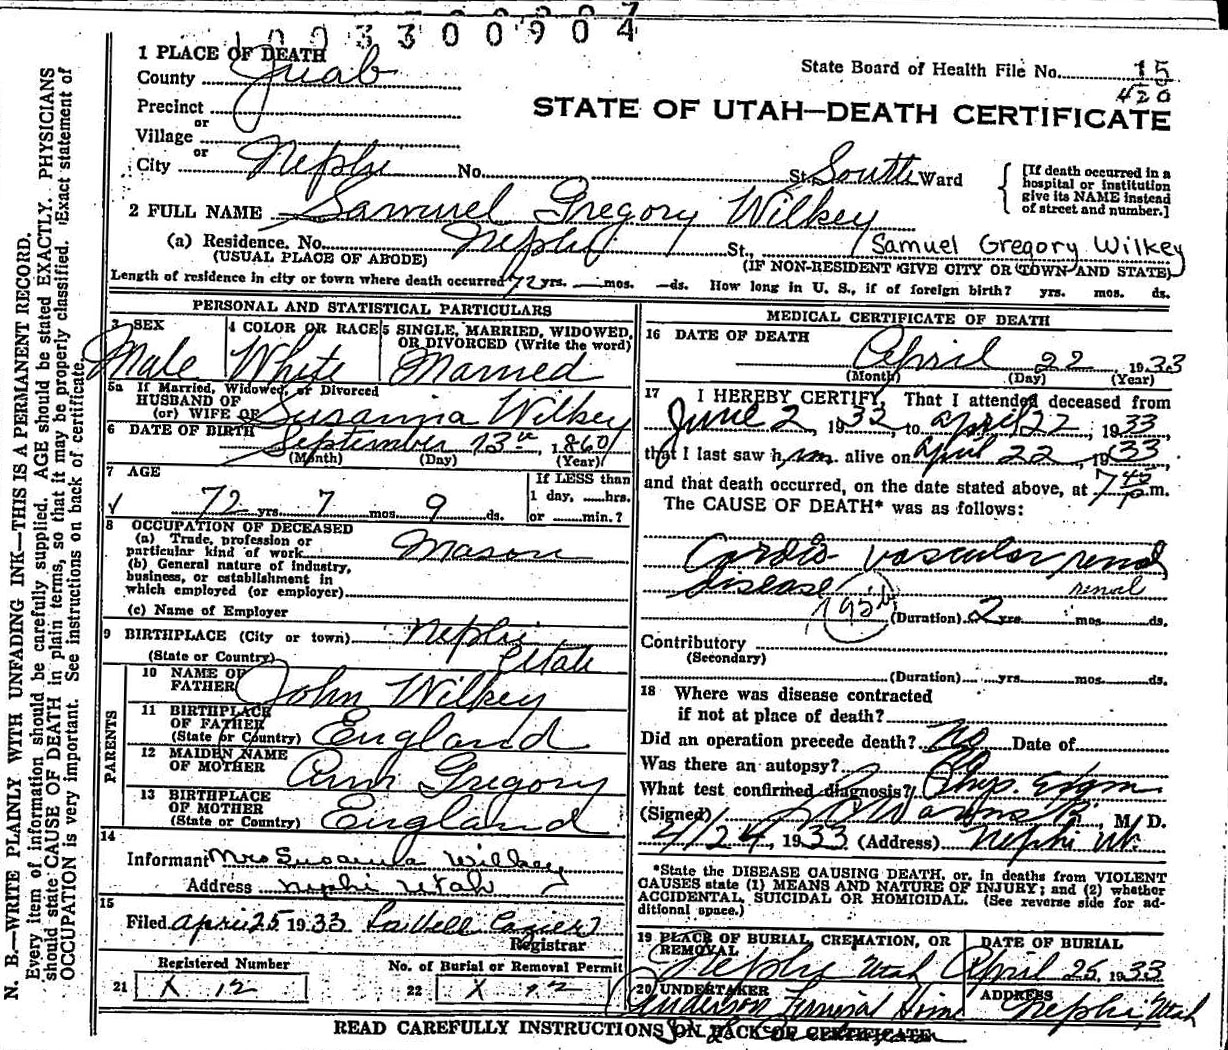 1003300904
1 PLACE OF DEATH
State Board of Health File No. 15
County Juab
420
STATE OF UTAH—DEATH CERTIFICATE
Precinct
or
Village
or
City Nephi No. St. South Ward
[If death occurred in a hospital or institution give its NAME instead of street and number.]
2 FULL NAME Samuel Gregory Wilkey
(a) Residence. No. Nephi St., Samuel Gregory Wilkey
(USUAL PLACE OF ABODE) (IF NON-RESIDENT GIVE CITY OR TOWN AND STATE)
Length of residence in city or town where death occurred 72 yrs. — mos. — ds. How long in U. S., if of foreign birth? yrs. mos. ds.
PERSONAL AND STATISTICAL PARTICULARS
3 SEX 4 COLOR OR RACE 5 SINGLE, MARRIED, WIDOWED, OR DIVORCED (Write the word)
Male White Married
5a If Married, Widowed, or Divorced
HUSBAND OF
(or) WIFE OF Susanna Wilkey
6 DATE OF BIRTH September 13th, 1860
(Month) (Day) (Year)
7 AGE If LESS than
1 day, hrs.
72 yrs. 7 mos. 9 ds. or min.?
8 OCCUPATION OF DECEASED
(a) Trade, profession or
particular kind of work Mason
(b) General nature of industry,
business, or establishment in
which employed (or employer)
(c) Name of Employer
9 BIRTHPLACE (City or town) Nephi
(State or Country) Utah
PARENTS
10 NAME OF
FATHER John Wilkey
11 BIRTHPLACE
OF FATHER
(State or Country) England
12 MAIDEN NAME
OF MOTHER Ann Gregory
13 BIRTHPLACE
OF MOTHER
(State or Country) England
14
Informant Mrs Susanna Wilkey
Address Nephi Utah
15
Filed April 25 1933 Lowell Cazier
Registrar
Registered Number No. of Burial or Removal Permit
21 X 12 22 X 12
MEDICAL CERTIFICATE OF DEATH
16 DATE OF DEATH
April 22, 1933
(Month) (Day) (Year)
17 I HEREBY CERTIFY, That I attended deceased from
June 2, 1932, to April 22, 1933,
that I last saw him alive on April 22, 1933,
and that death occurred, on the date stated above, at 7 45 P.m.
The CAUSE OF DEATH* was as follows:
Cardio vascular renal
disease renal
195b
(Duration) 2 yrs. mos. ds.
Contributory
(Secondary)
(Duration) yrs. mos. ds.
18 Where was disease contracted
if not at place of death?
Did an operation precede death? No Date of
Was there an autopsy? No
What test confirmed diagnosis? Phys. Exam
(Signed) , M. D.
4/24, 1933 (Address) Nephi Ut.
*State the DISEASE CAUSING DEATH, or, in deaths from VIOLENT
CAUSES state (1) MEANS AND NATURE OF INJURY; and (2) whether
ACCIDENTAL, SUICIDAL OR HOMICIDAL. (See reverse side for ad-
ditional space.)
19 PLACE OF BURIAL, CREMATION, OR DATE OF BURIAL
REMOVAL
Nephi Utah April 25, 1933
20 UNDERTAKER ADDRESS
Anderson Funeral Home Nephi, Utah
READ CAREFULLY INSTRUCTIONS ON BACK OF CERTIFICATE
N. B.—WRITE PLAINLY WITH UNFADING INK—THIS IS A PERMANENT RECORD.
Every item of information should be carefully supplied. AGE should be stated EXACTLY. PHYSICIANS
should state CAUSE OF DEATH in plain terms, so that it may be properly classified. Exact statement of
OCCUPATION is very important. See instructions on back of certificate.